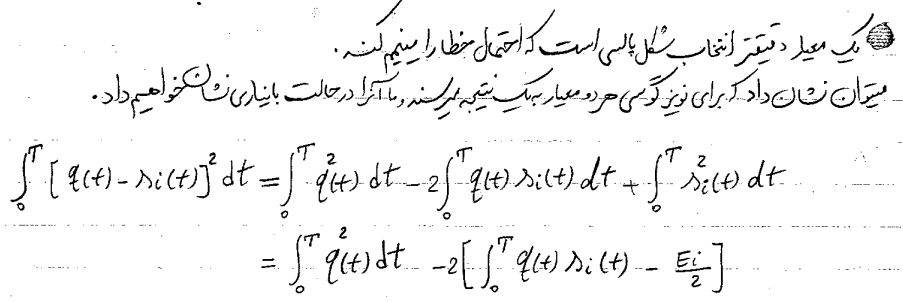 یک معیار دقیقتر انتخاب شکل پالسی است که احتمال خطا را مینیمم کند.
میتوان نشان داد که برای نویز گوسی هر دو معیار به یک نتیجه میرسند و ما آنرا در حالت باینری نشان خواهیم داد.
∫₀ᵀ [q(t) - sᵢ(t)]² dt = ∫₀ᵀ q²(t) dt - 2∫₀ᵀ q(t) sᵢ(t) dt + ∫₀ᵀ sᵢ²(t) dt
= ∫₀ᵀ q²(t) dt - 2[∫₀ᵀ q(t) sᵢ(t) - Eᵢ/2]